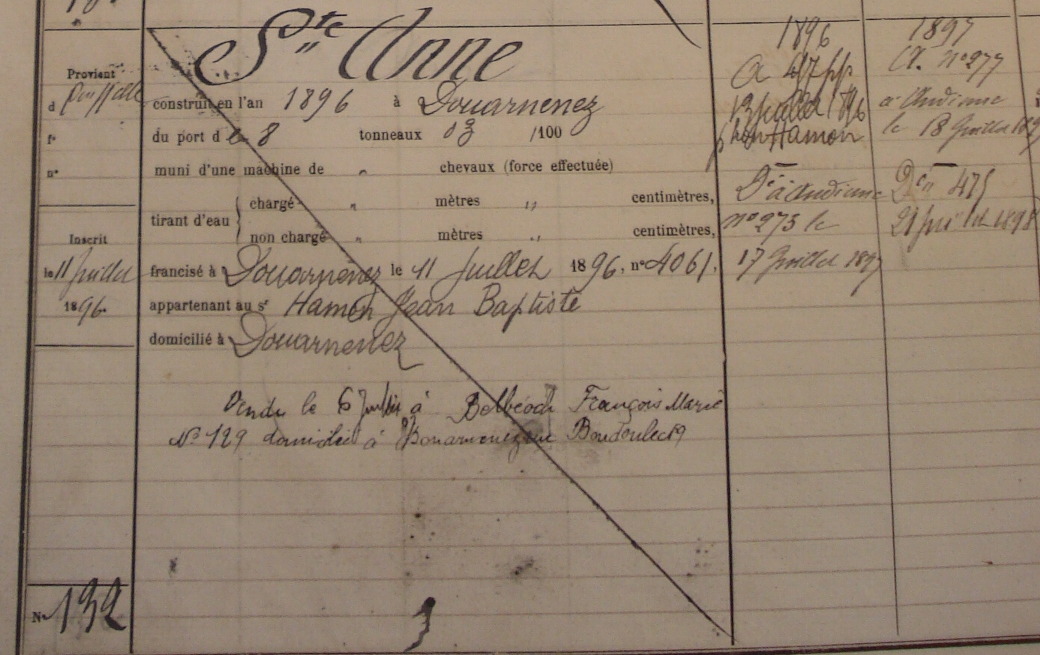 Ste Anne
Provient
d
f°
n°
construit en l'an 1896 à Douarnenez
du port de 8 tonneaux 03 /100
muni d'une machine de " chevaux (force effectuée)
tirant d'eau
chargé " mètres " centimètres,
non chargé " mètres " centimètres,
Inscrit
le 11 Juillet
1896.
francisé à Douarnenez le 11 Juillet 1896, n° 4061,
appartenant au sr Hamon Jean Baptiste
domicilié à Douarnenez
Vendu le 6 à Belbéoch François Marie
N° 129 domicilié à Douarnenez
N° 132
1
1896
13 juillet 1896
Hamon
à Audierne
n° 273 le
17 Juillet 1897
1897
A. n° 277
à Audierne
le 18 Juillet
Den 475
21 1898